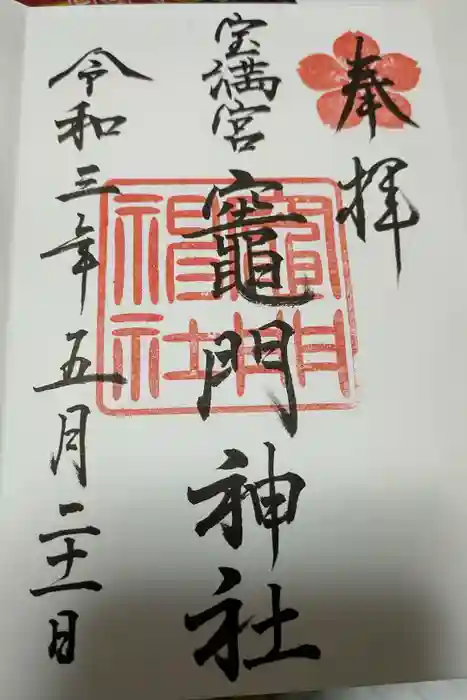 奉拝
宝満宮
竈門神社
令和三年五月二十一日
竈門
神社